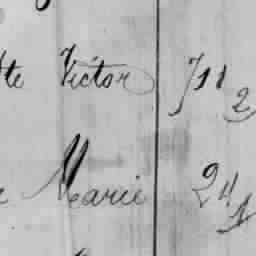 tte Victor 711 2
e Marie 24 1